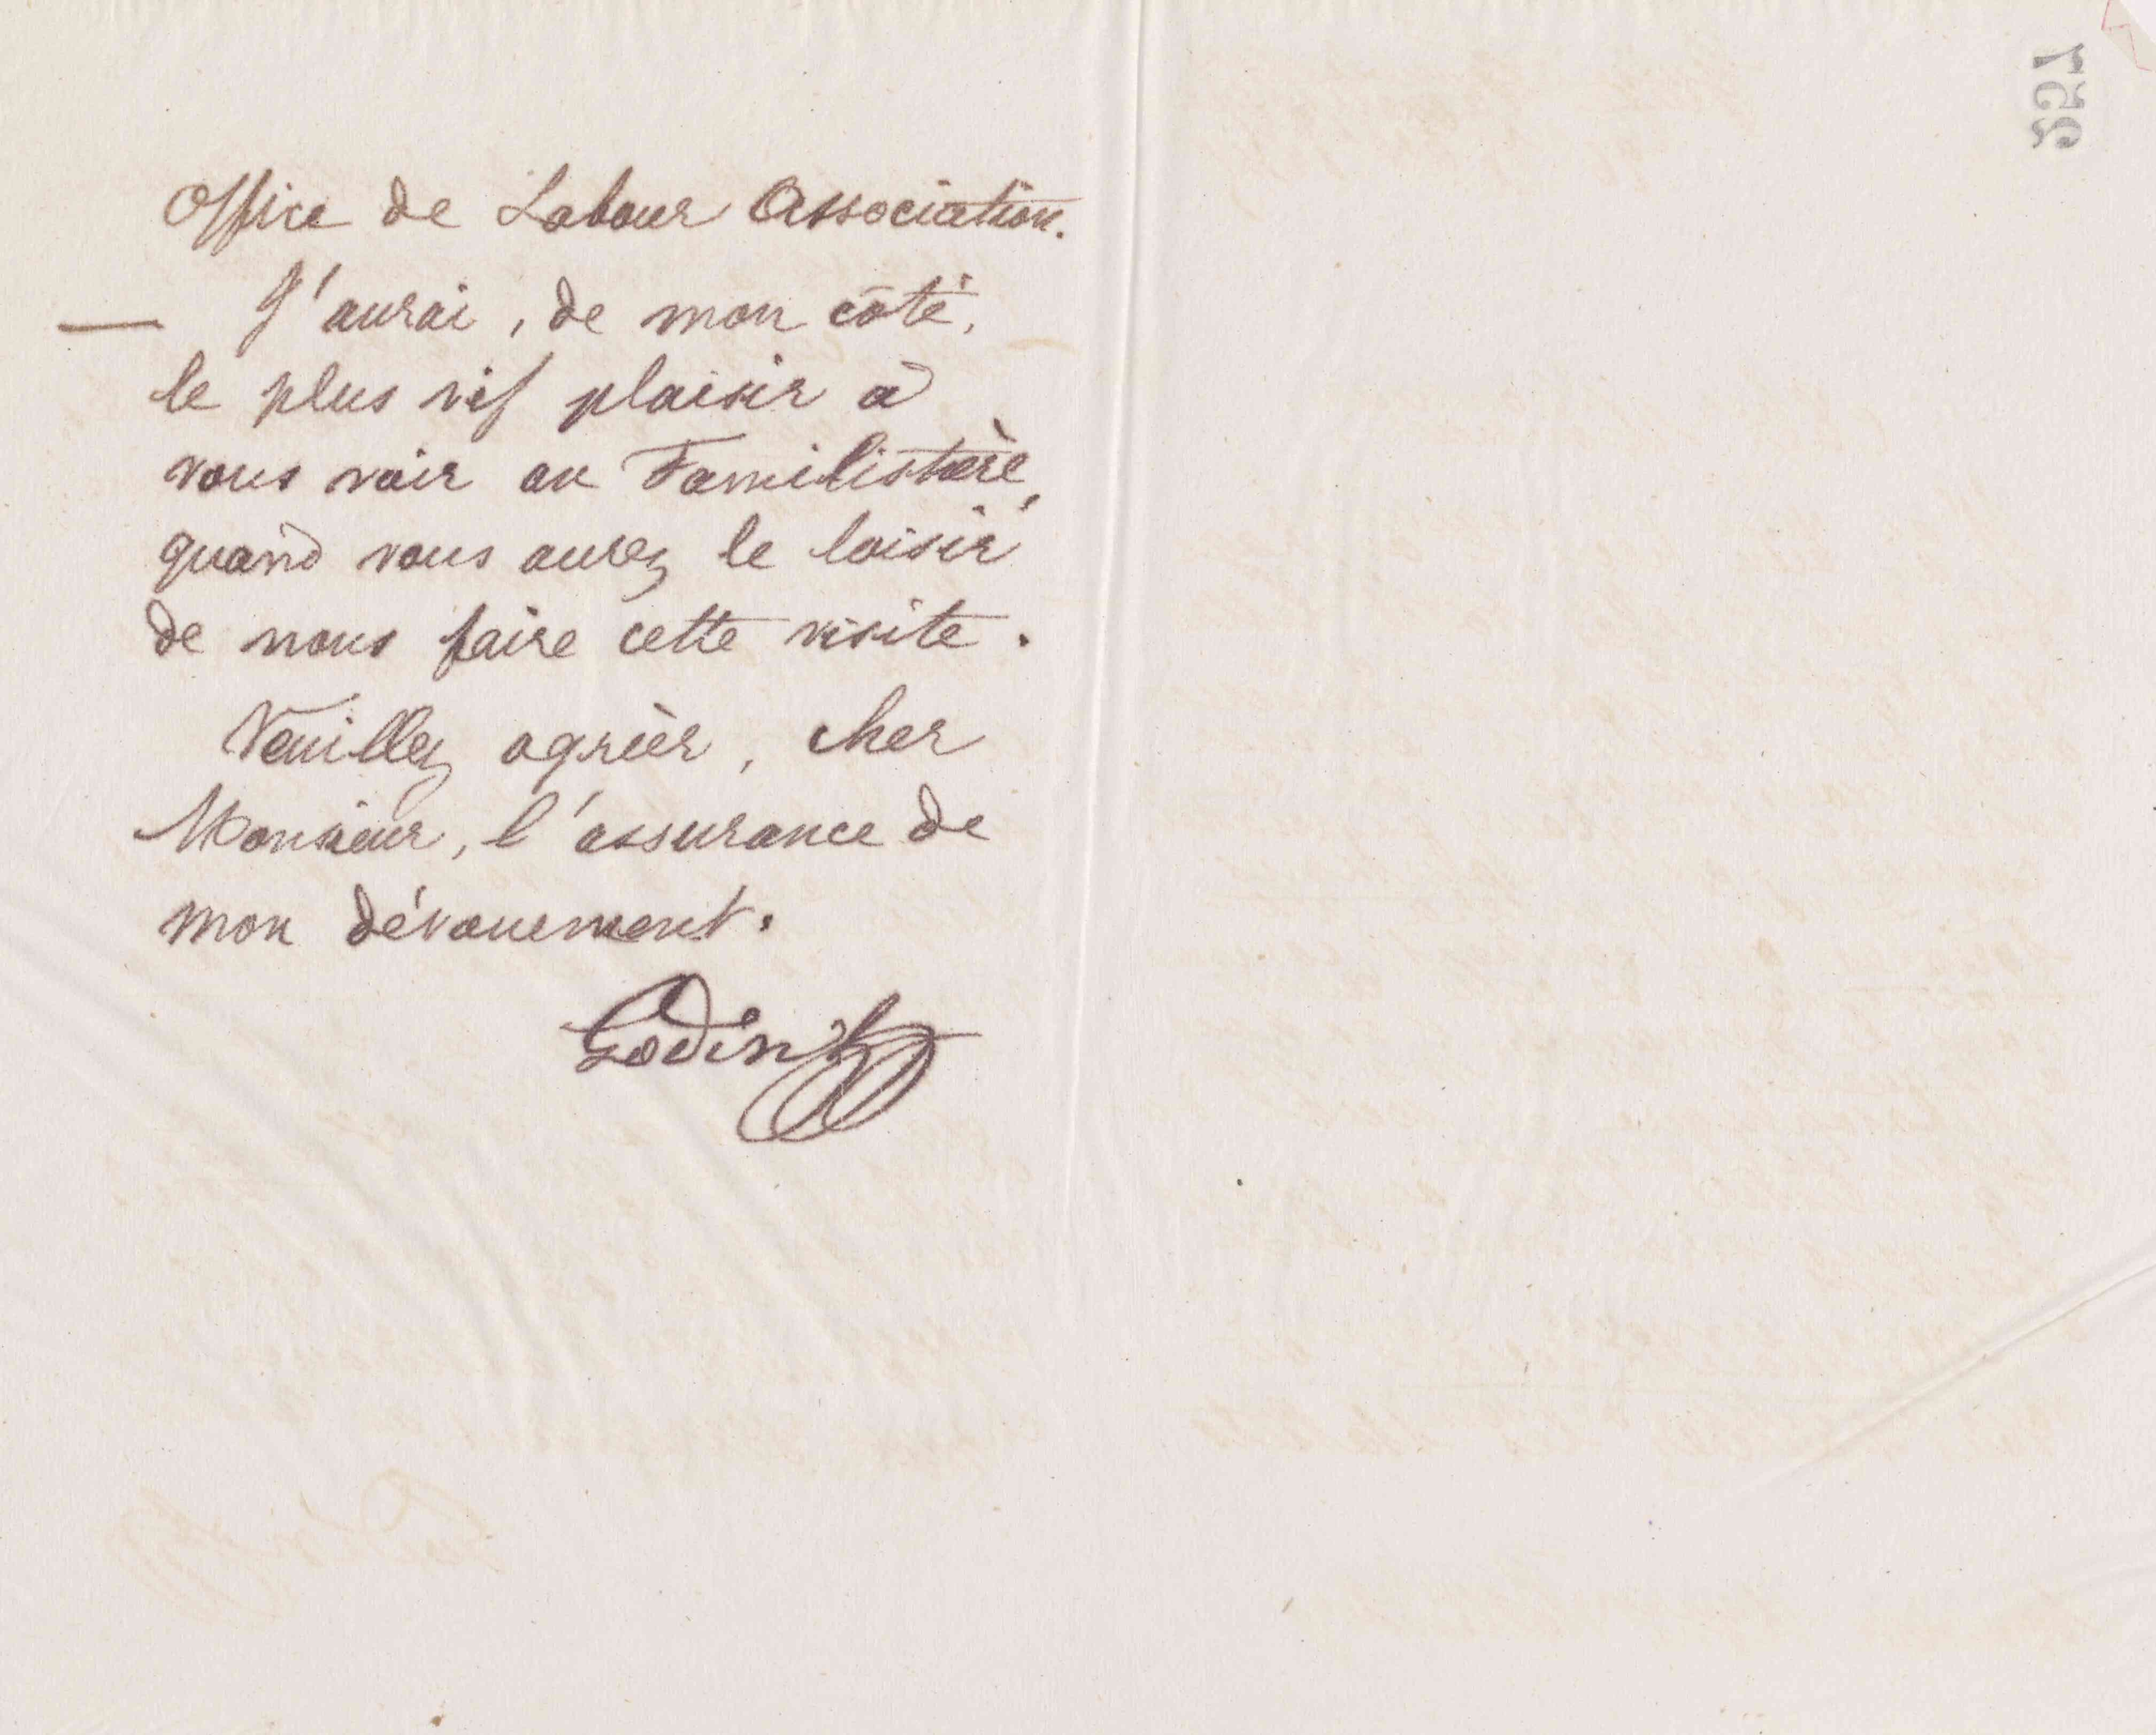 Office de Labour Association.
— J'aurai, de mon côté,
le plus vif plaisir à
vous voir au Familistère,
quand vous aurez le loisir
de nous faire cette visite.
Veuillez agréer, cher
Monsieur, l'assurance de
mon dévouement.
Godin
257